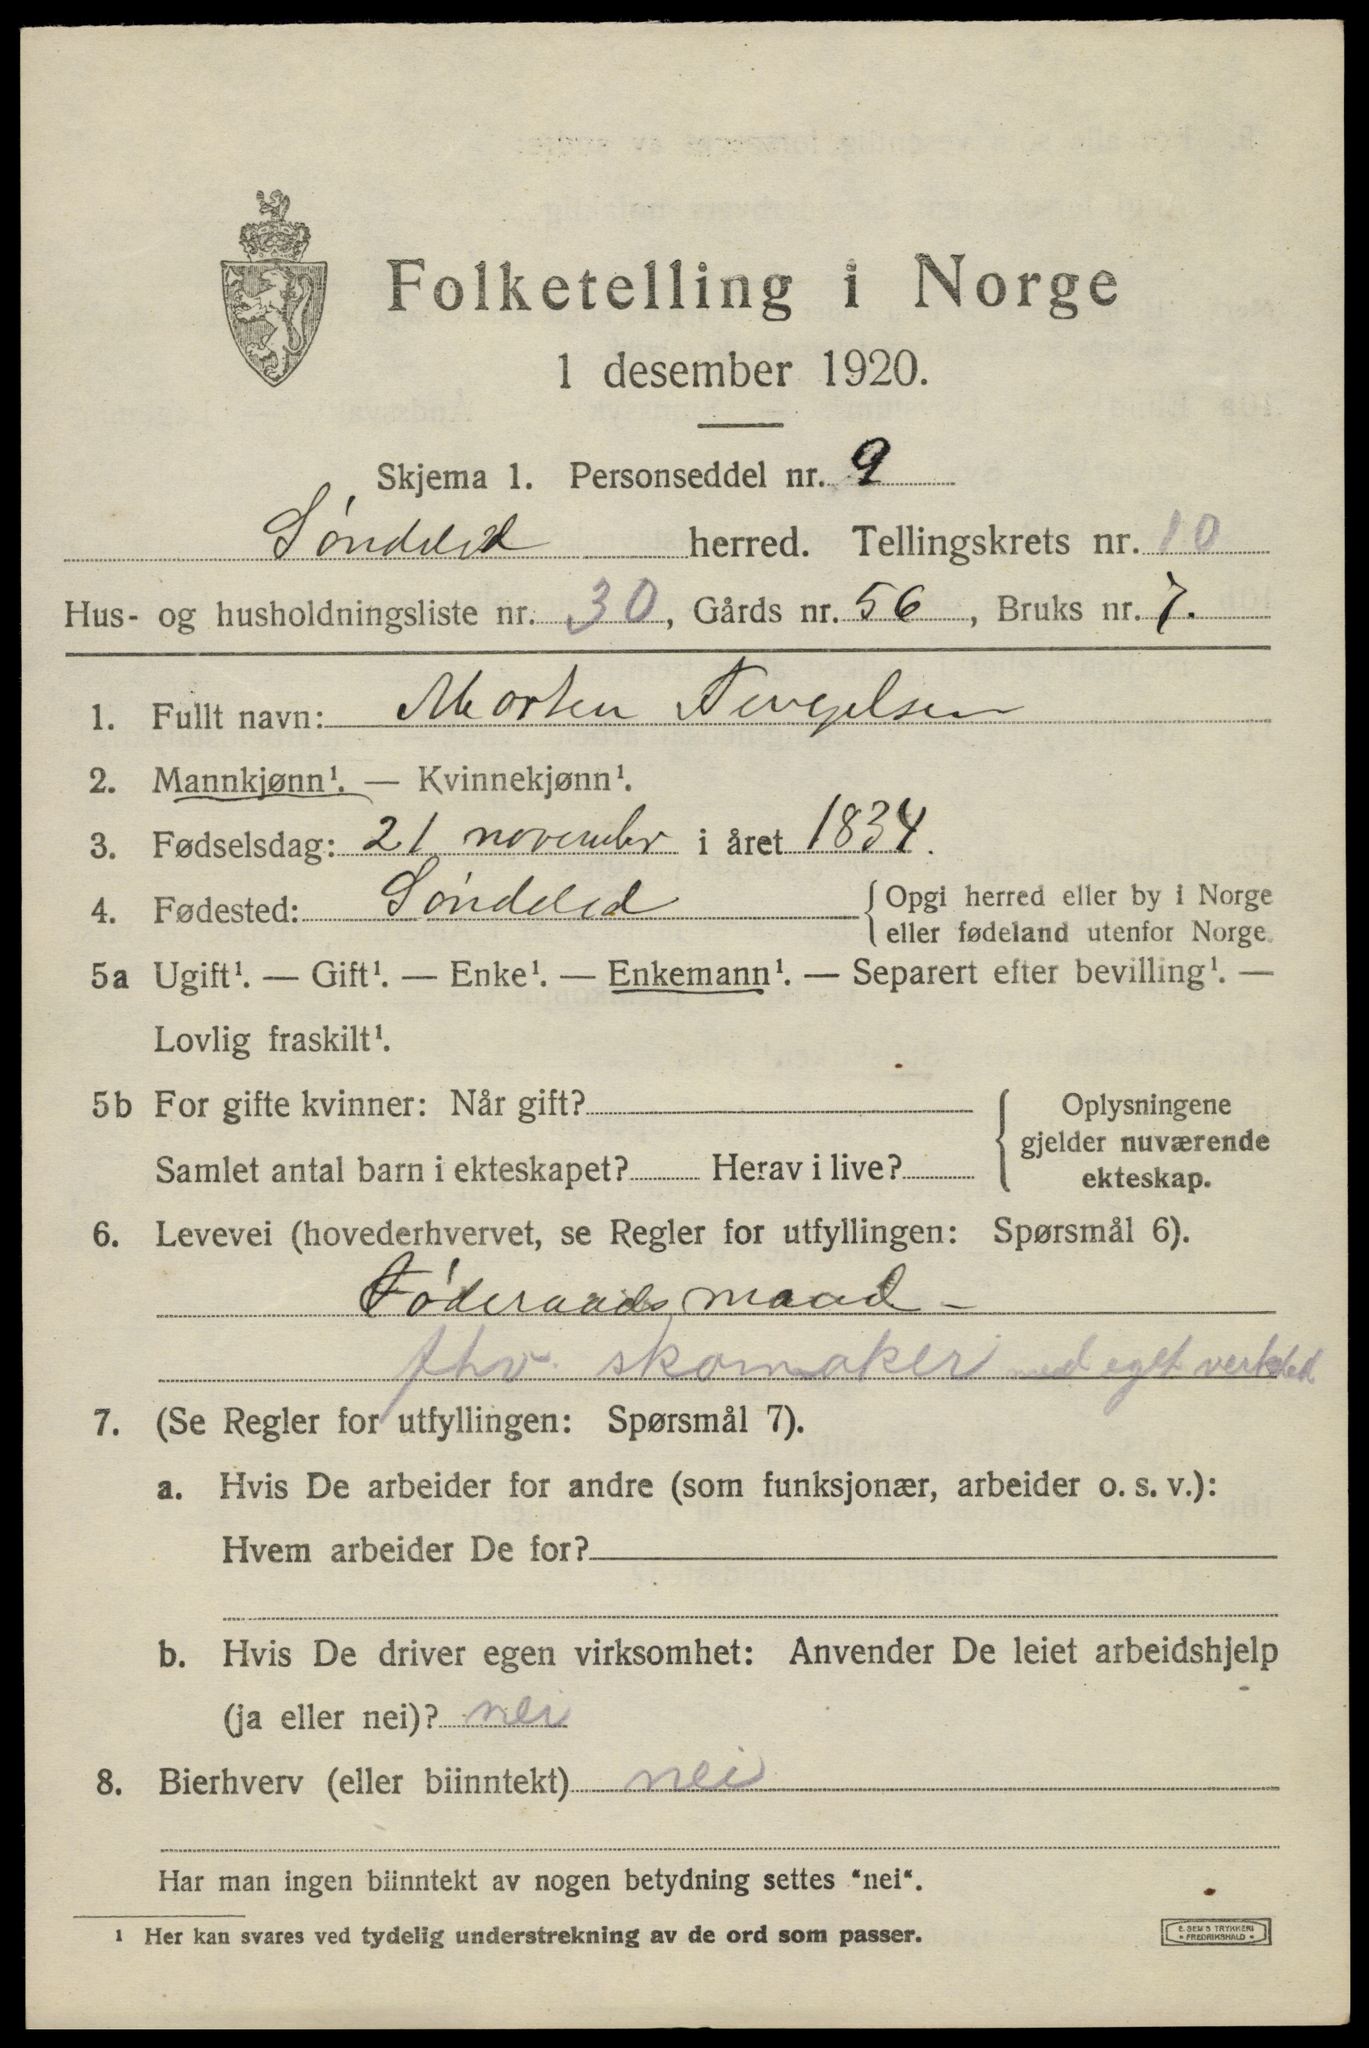 Folketelling i Norge
1 desember 1920.
Skjema 1. Personseddel nr. 9
Søndeled herred. Tellingskrets nr. 10
Hus- og husholdningsliste nr. 30, Gårds nr. 56, Bruks nr. 7.
1. Fullt navn: Morten
2. Mannkjønn¹. — Kvinnekjønn¹.
3. Fødselsdag: 21 november i året 1834.
4. Fødested: Søndeled { Opgi herred eller by i Norge
eller fødeland utenfor Norge.
5a Ugift¹. — Gift¹. — Enke¹. — Enkemann¹. — Separert efter bevilling¹. —
Lovlig fraskilt¹.
5b For gifte kvinner: Når gift?
Samlet antal barn i ekteskapet? Herav i live?
{ Oplysningene
gjelder nuværende
ekteskap.
6. Levevei (hovederhvervet, se Regler for utfyllingen: Spørsmål 6).
Føderaadsmand -
fhv. skomaker med eget verksted
7. (Se Regler for utfyllingen: Spørsmål 7).
a. Hvis De arbeider for andre (som funksjonær, arbeider o. s. v.):
Hvem arbeider De for?
b. Hvis De driver egen virksomhet: Anvender De leiet arbeidshjelp
(ja eller nei)? nei
8. Bierhverv (eller biinntekt) nei
Har man ingen biinntekt av nogen betydning settes "nei".
¹ Her kan svares ved tydelig understrekning av de ord som passer.
E. SEM'S TRYKKERI
• FREDRIKSHALD •